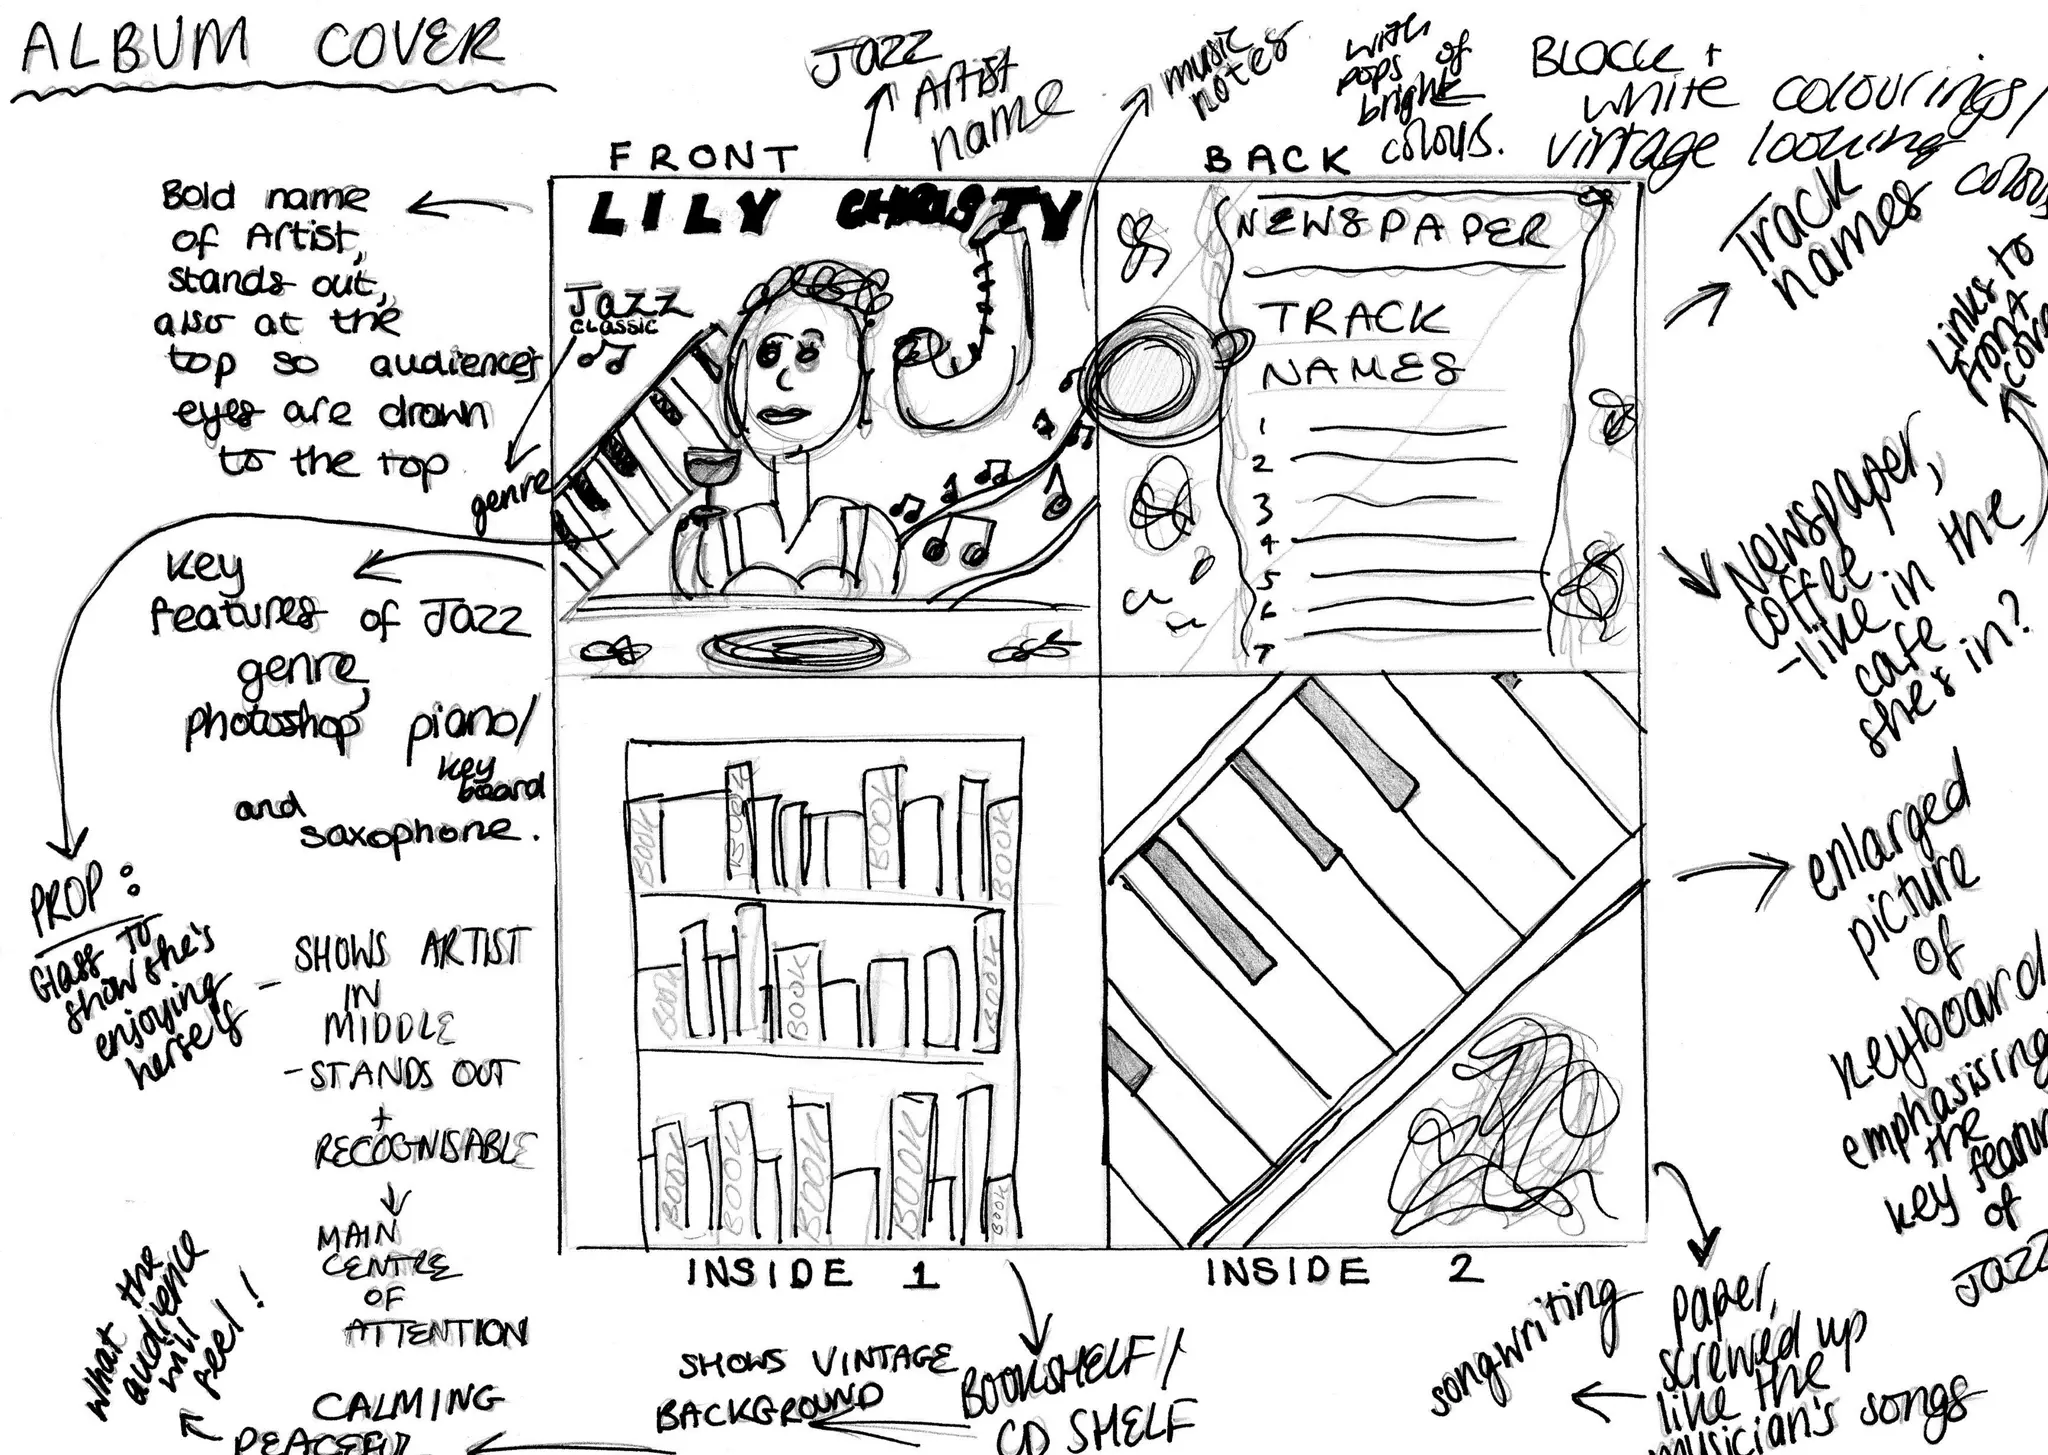 ALBUM COVER
Jazz
Artist
name
music
notes
with
pops of
bright
colours.
BLACK +
white colourings/
vintage looking
colou
FRONT
BACK
Bold name
of Artist,
stands out,
also at the
top so audience's
eyes are drawn
to the top
LILY CHRISTY
Jazz
CLASSIC
genre
NEWSPAPER
TRACK
NAMES
1
2
3
4
5
6
7
Track
names
Links to
front
cover
Newspaper,
coffee
- like in the
cafe
she's in?
key
features of Jazz
genre,
photoshop piano/
key
board
and
saxophone.
PROP:
Glass to
show she's
enjoying
herself
- SHOWS ARTIST
IN
MIDDLE
- STANDS OUT
+
RECOGNISABLE
MAIN
CENTRE
OF
ATTENTION
what the
audience
will
feel!
CALMING
PEACEFUL
BOOK
BOOK
BOOK
BOOK
BOOK
BOOK
BOOK
BOOK
BOOK
BOOK
BOOK
BOOK
INSIDE 1
INSIDE 2
SHOWS VINTAGE
BACKGROUND
BOOKSHELF/
CD SHELF
enlarged
picture
of
keyboard
emphasising
the
key featur
of
Jazz
paper,
screwed up
like the
musician's songs
songwriting